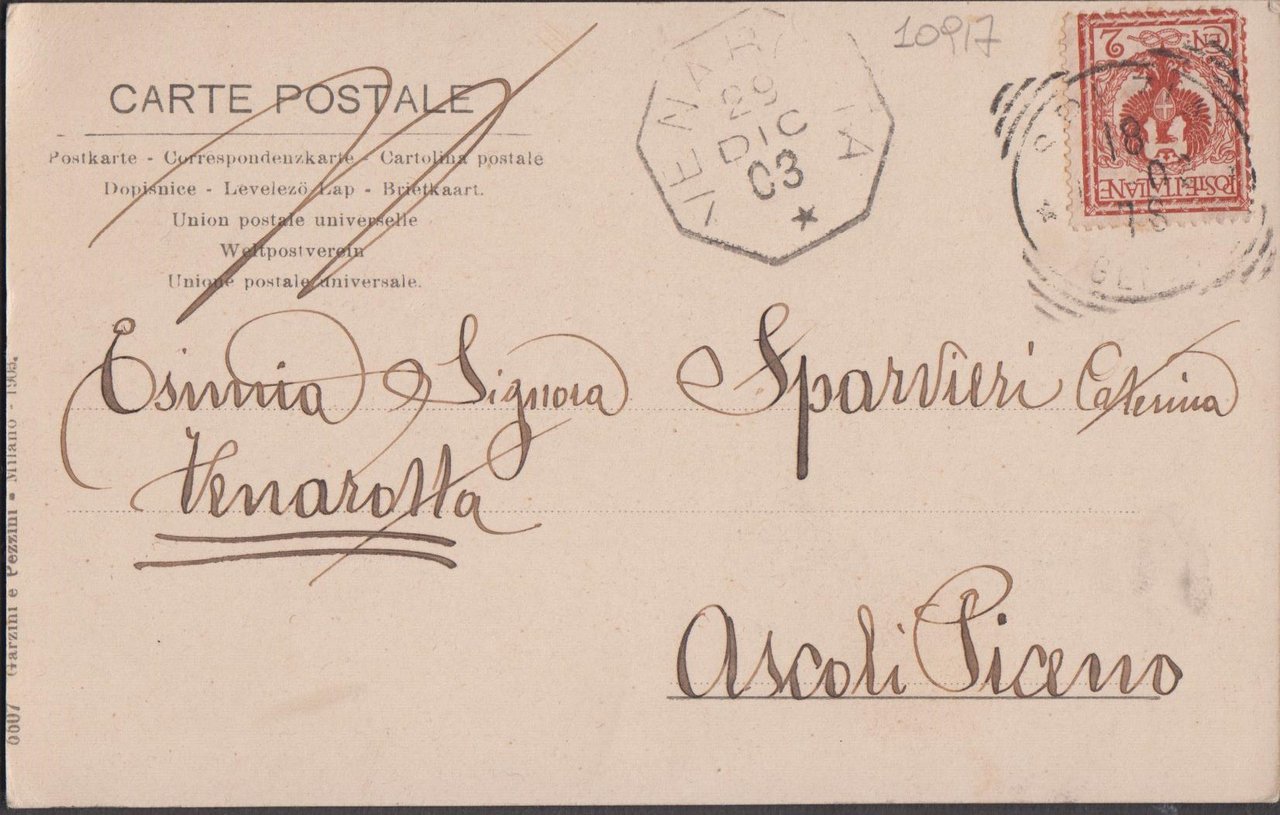 10917
CARTE POSTALE
Postkarte - Correspondenzkarte - Cartolina postale
Dopisnice - Levelezö-Lap - Briefkaart.
Union postale universelle
Weltpostverein
Unione postale universale.
VENAROTTA
29
DIC
03
CEN. 2
POSTE ITALIANE
18
Esimia Signora Sparvieri Caterina
Venarotta
Ascoli Piceno
6607 Garzini e Pezzini - Milano - 1903.